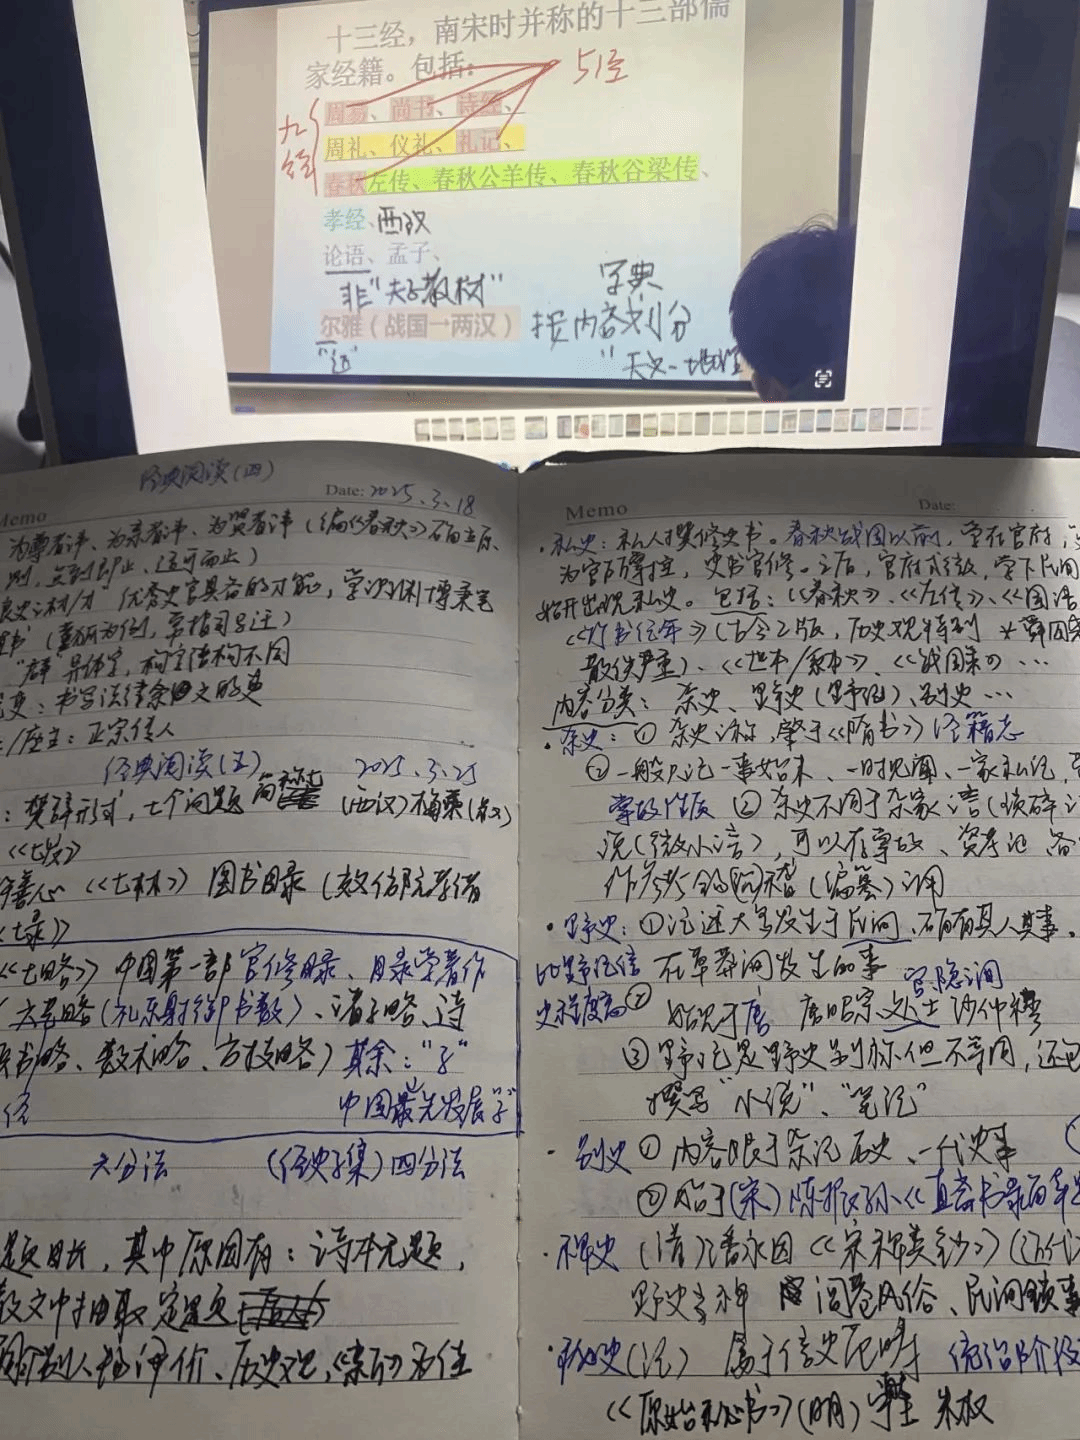 十三经，南宋时并称的十三部儒
家经籍。包括：
5经
九经
周易、尚书、诗经、
周礼、仪礼、礼记、
春秋左传、春秋公羊传、春秋谷梁传、
孝经、西汉
论语、孟子、
非“夫子教材”
字典
尔雅（战国→两汉）
按内容划分
“近”
“天文－地理
经典阅读（四）
Memo
Date: 2025.3.18
为尊者讳、为亲者讳、为贤者讳（编《春秋》
则，点到即止、适可而止）
优秀史官具备的才能，学识渊博秉笔
书（董狐为例，常指司马迁）
“群”异体字，构字结构不同
变：书写法律条文的吏
/座主：正宗传人
经典阅读（五） 2025.3.25
：楚辞形式，七个问题 （西汉）枚乘
《七发》
《七林》 图书目录（效仿阮孝绪
《七略》中国第一部官修目录、目录学著作
（六艺略（礼乐射御书数）、诸子略、诗
兵书略、数术略、方技略）其余：“子”
中国最先发展“子”
六分法 （经史子集）四分法
题目长，其中原因有：诗本无题，
散文中抽取定题
评价、历史观、
Memo
Date:
·私史：私人撰修史书。春秋战国以前，学在官府，
为官府掌控，史书官修。之后，官府式微，学下民间
始开出现私史。包括：《春秋》、《左传》、《国语
《竹书纪年》（古今2版，历史观特别
散佚严重）、《世本/系本》、《战国策》…
内容分类：杂史、野史（野记）、别史…
·杂史：① 杂史之称，肇于《隋书》经籍志
② 一般只记一事始末、一时见闻、一家私记，
掌故性质 ② 杂史不同于杂家言（琐碎
说（微小言），可以存掌故、资考证、备
·野史：① 记述大多发生于民间、
比野记信 在草莽间发生的事 官隐之间
史程度高② 始见于唐 唐昭宗 处士 沙仲穆
③ 野记是野史别称但不等同，还
撰写“小说”、“笔记”
·别史 ① 内容限于杂记历史、一代史事
② 始于（宋）陈振孙《直斋书录
·稗史 （清）潘永因《宋稗类钞》（
野史 稗 闾巷风俗、民间锁事
·秘史（记） 属于信史范畴 统治阶级
《原始秘书》（明） 朱权